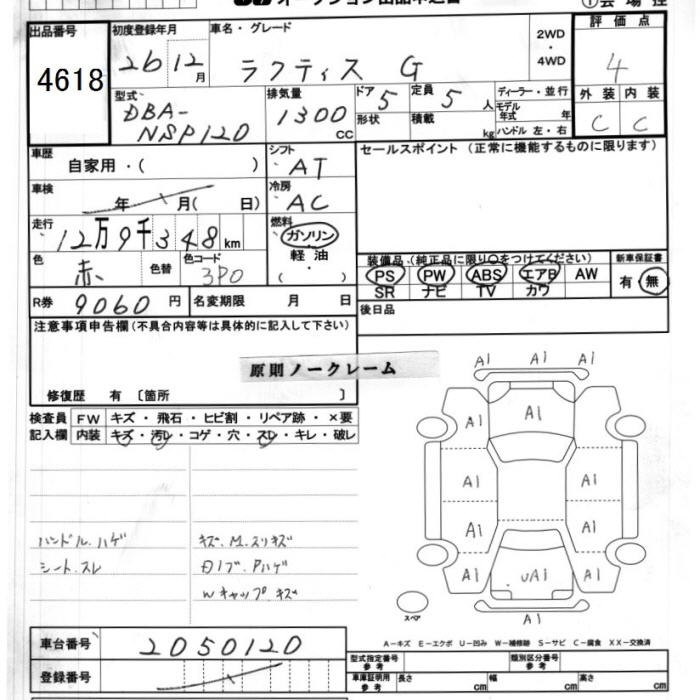 オークション出品申込書
①会場控
出品番号
4618
初度登録年月
26 12月
車名・グレード
ラクティス G
2WD
・
4WD
評価点
4
外装 内装
C C
型式
DBA-
NSP120
排気量
1300
CC
ドア
5
形状
定員
5 人
積載
kg
ディーラー・並行
モデル
年式 年
ハンドル 左・右
車歴
自家用・( )
シフト
AT
セールスポイント (正常に機能するものに限ります)
車検
年 月( 日)
冷房
AC
走行
12万9千348km
燃料
ガソリン
・
軽油
・
( )
色
赤
色替
色コード
3P0
装備品 (純正品に限り○をつけてください)
PS PW ABS エアB AW
SR ナビ TV カワ
新車保証書
有・無
R券 9060 円
名変期限 月 日
後日品
注意事項申告欄(不具合内容等は具体的に記入して下さい)
原則ノークレーム
修復歴 有 〔箇所 〕
検査員
記入欄
FW キズ・飛石・ヒビ割・リペア跡・×要
内装 キズ・汚レ・コゲ・穴・スレ・キレ・破レ
ハンドル.ハゲ
シート.スレ
キズ.M.スリキズ
Pハゲ
Wキャップ.キズ
A1 A1 A1
A1 A1 A1
A1 A1
A1 A1
A1 UA1 A1
A1
スペア
A－キズ E－エクボ U－凹み W－補修跡 S－サビ C－腐食 XX－交換済
車台番号 2050120
登録番号
型式指定番号
参考
類別区分番号
参考
車庫証明用
参考
長さ cm 幅 cm 高さ cm